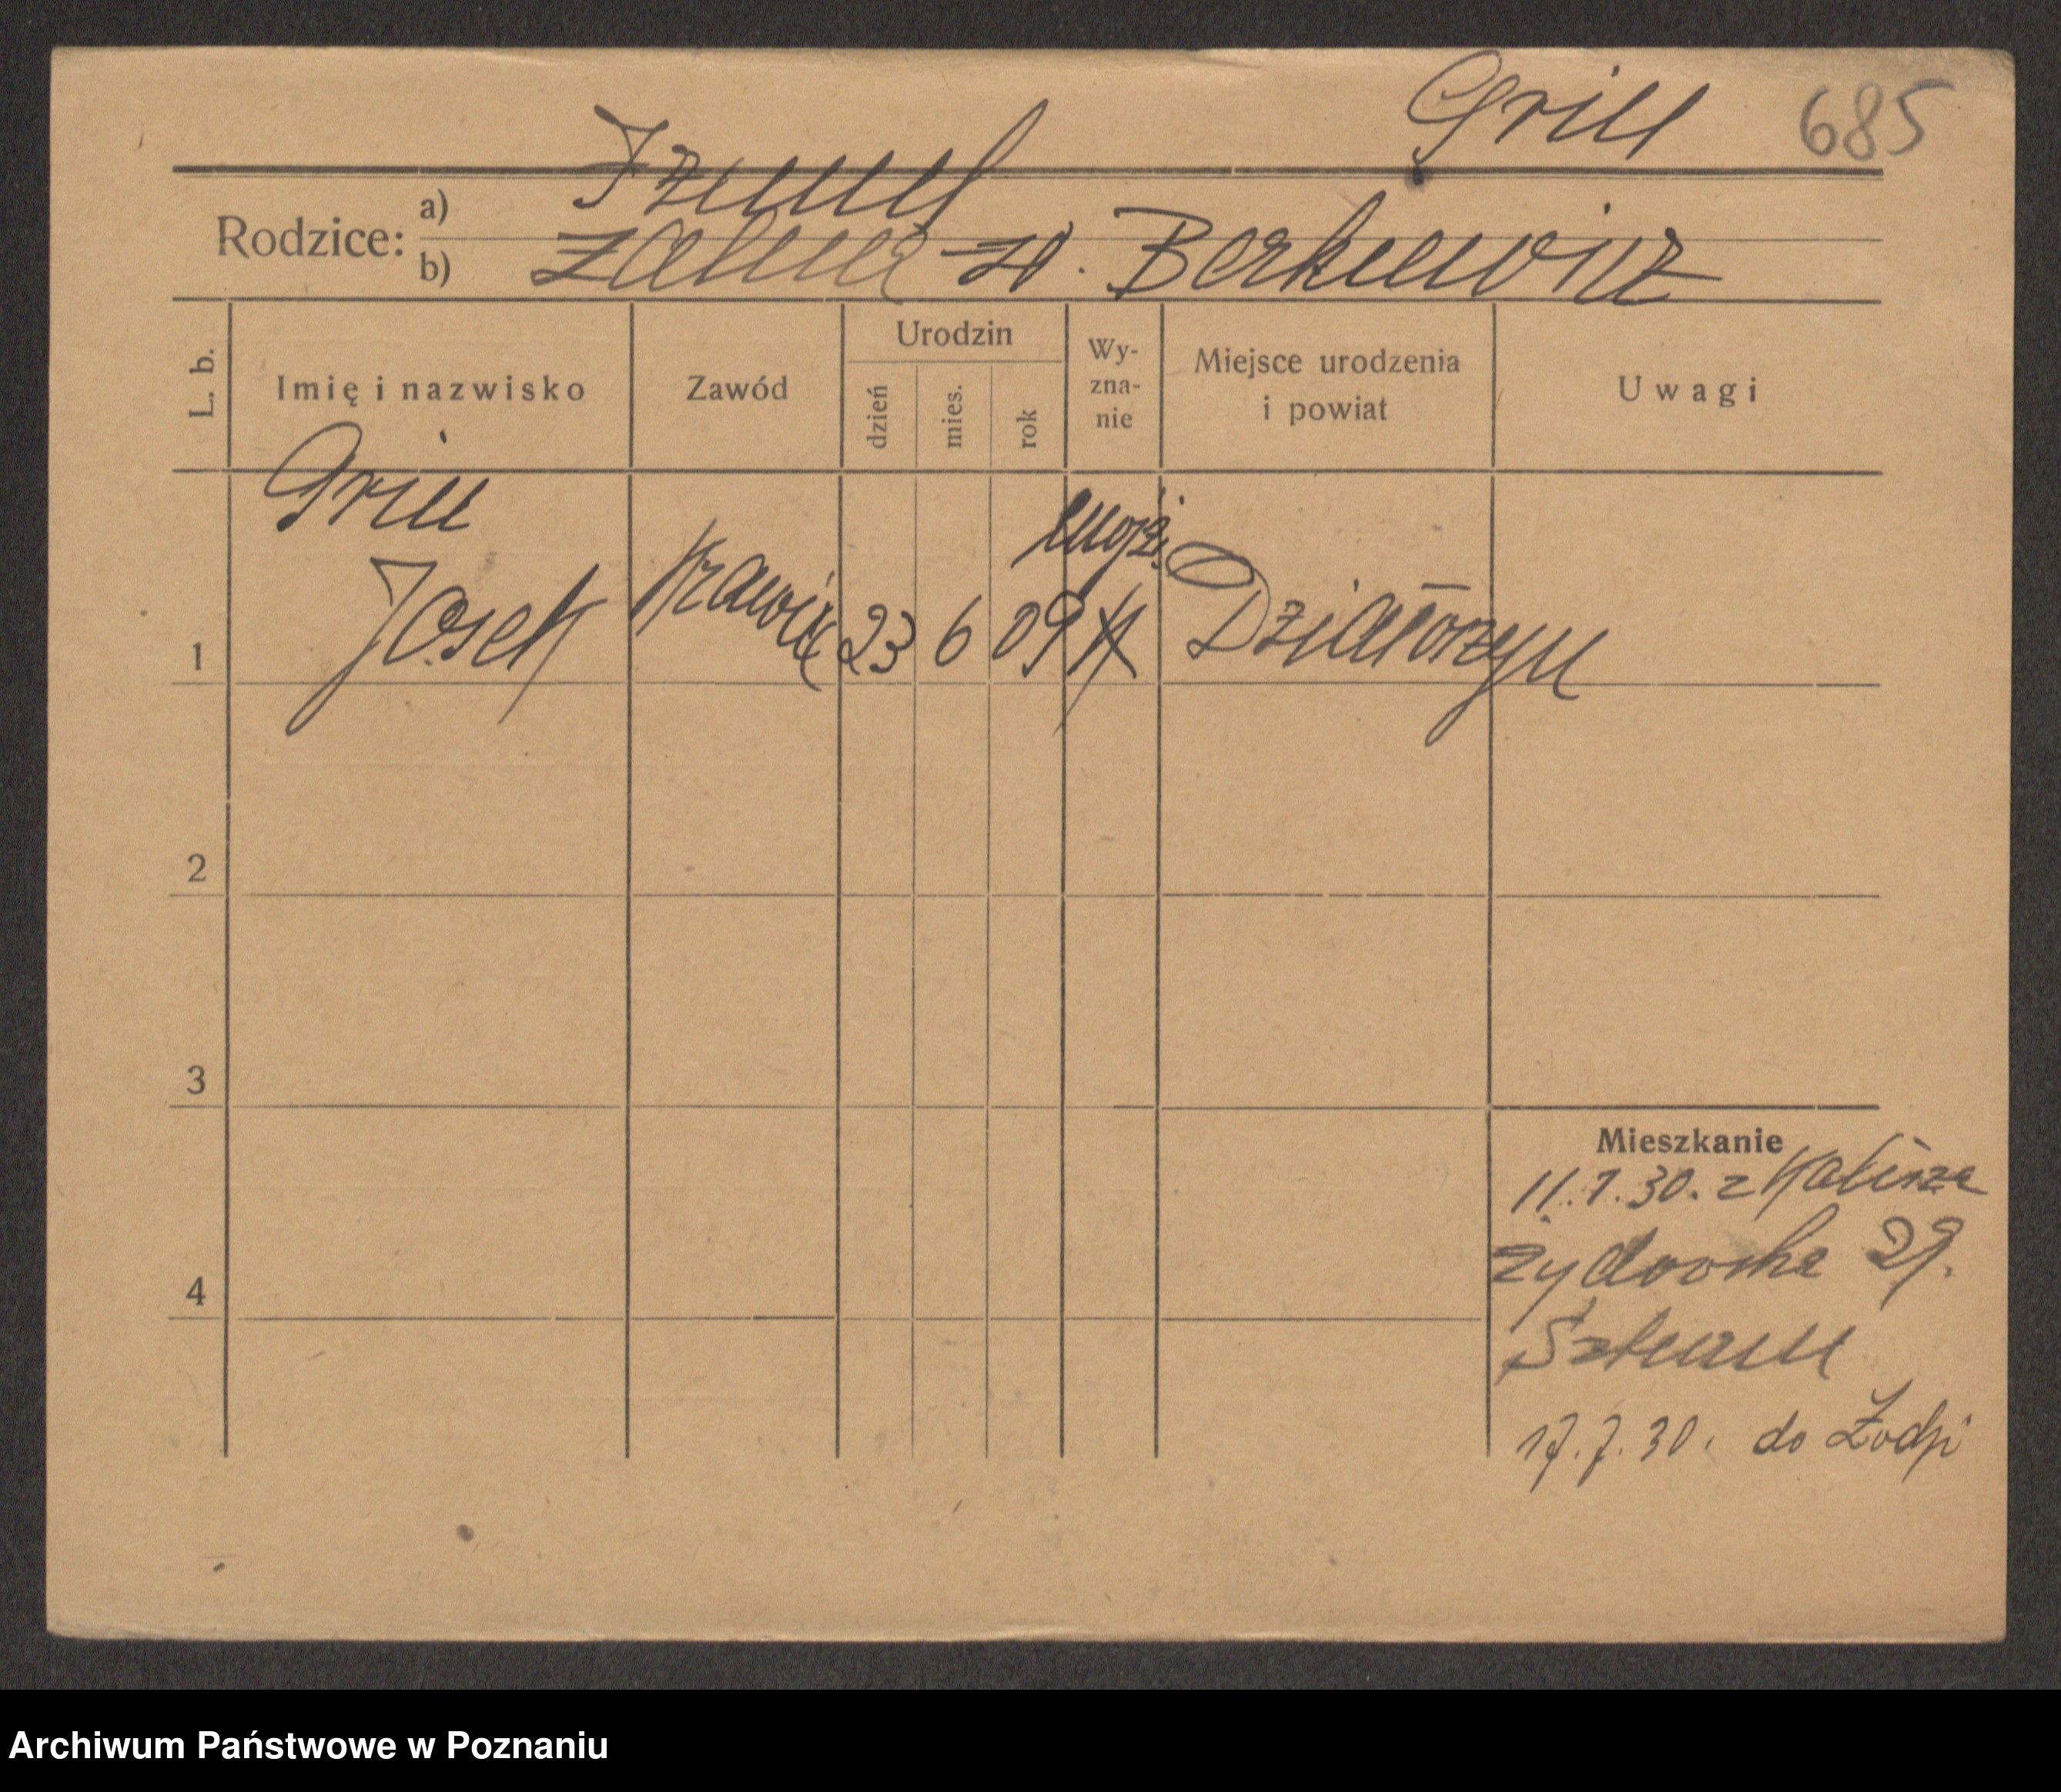 Grill 685
Rodzice: a) Izmul
b) Zalma zd. Berkiewicz
L. b. Imię i nazwisko Zawód Urodzin dzień mies. rok Wy-zna-nie Miejsce urodzenia i powiat Uwagi
Grill
mojż.
1 Josek Krawiec 23 6 09 K Działoszyn
2
3
Mieszkanie
11.7.30. z Kalisza
4 Żydowska 29.
17.7.30. do Łodzi
Archiwum Państwowe w Poznaniu